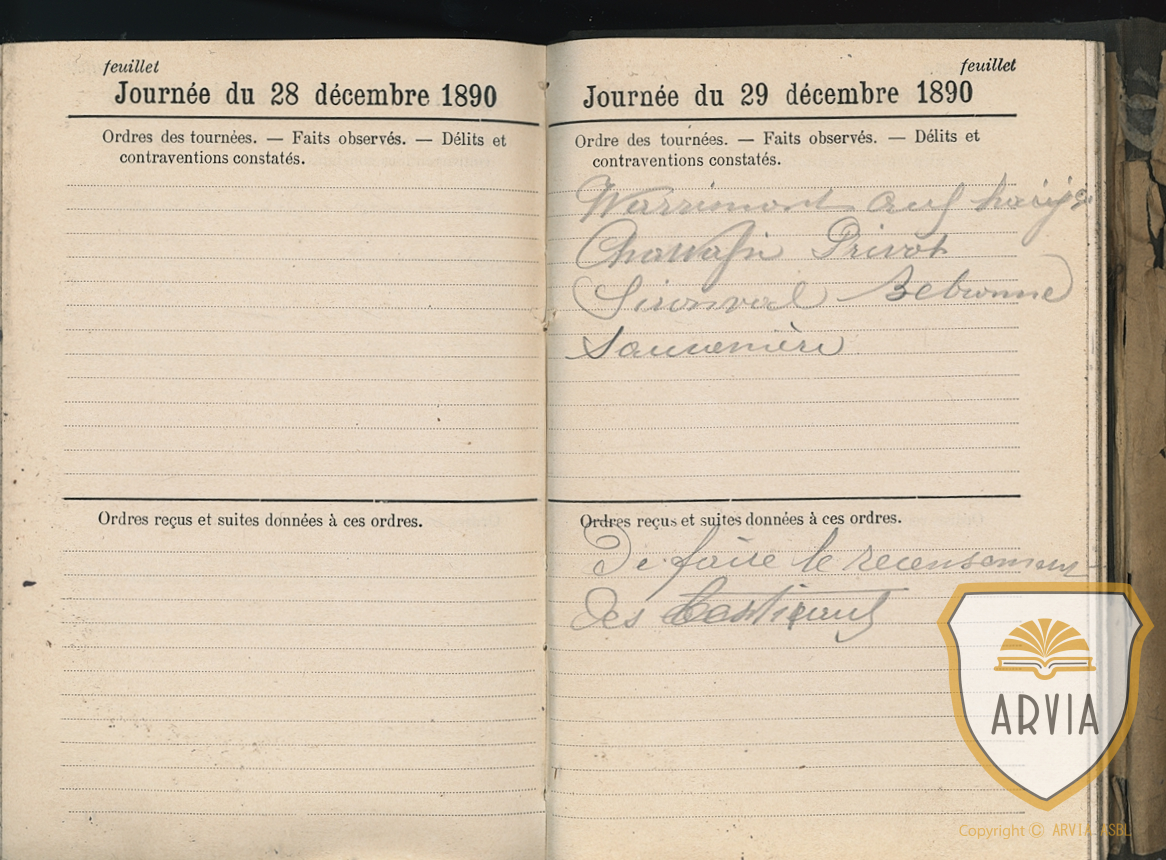 feuillet
Journée du 28 décembre 1890
Ordres des tournées. — Faits observés. — Délits et
contraventions constatés.
Ordres reçus et suites données à ces ordres.
feuillet
Journée du 29 décembre 1890
Ordre des tournées. — Faits observés. — Délits et
contraventions constatés.
Warrimont
Chawafin Privot
Sironval Bebronne
Sauvenière
Ordres reçus et suites données à ces ordres.
De faire le recensement
des
ARVIA
Copyright © ARVIA ASBL